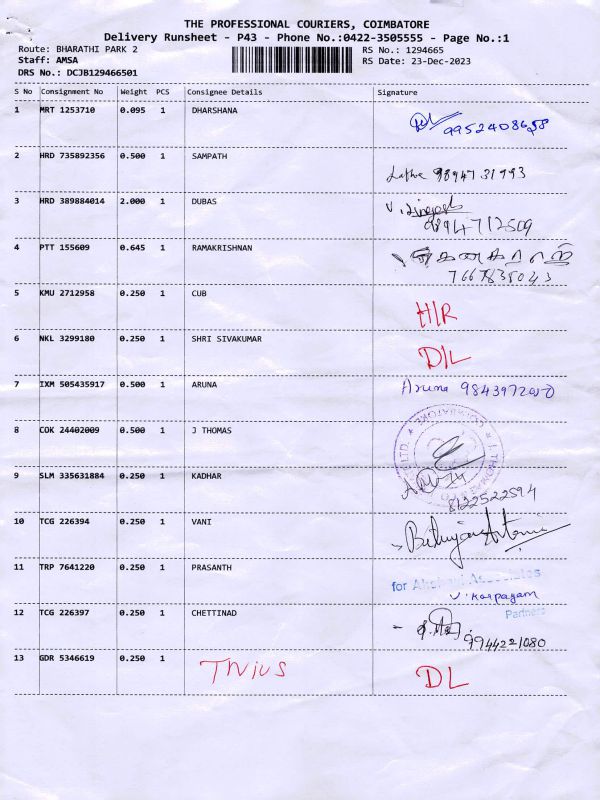 THE PROFESSIONAL COURIERS, COIMBATORE
Delivery Runsheet - P43 - Phone No.:0422-3505555 - Page No.:1
Route: BHARATHI PARK 2 RS No.: 1294665
Staff: AMSA RS Date: 23-Dec-2023
DRS No.: DCJB129466501
S No Consignment No Weight PCS Consignee Details Signature
1 MRT 1253710 0.095 1 DHARSHANA
9952408658
2 HRD 735892356 0.500 1 SAMPATH
Latha 9894731993
3 HRD 389884014 2.000 1 DUBAS
9894712509
4 PTT 155609 0.645 1 RAMAKRISHNAN
7667835043
5 KMU 2712958 0.250 1 CUB
H/R
6 NKL 3299180 0.250 1 SHRI SIVAKUMAR
D/L
7 IXM 505435917 0.500 1 ARUNA Aruna 9843972050
8 COK 24402009 0.500 1 J THOMAS
J. THOMAS COIMBATORE
9 SLM 335631884 0.250 1 KADHAR
8122522594
10 TCG 226394 0.250 1 VANI
11 TRP 7641220 0.250 1 PRASANTH
for Associates
V. Karpagam
Partners
12 TCG 226397 0.250 1 CHETTINAD
9944221080
13 GDR 5346619 0.250 1 DL